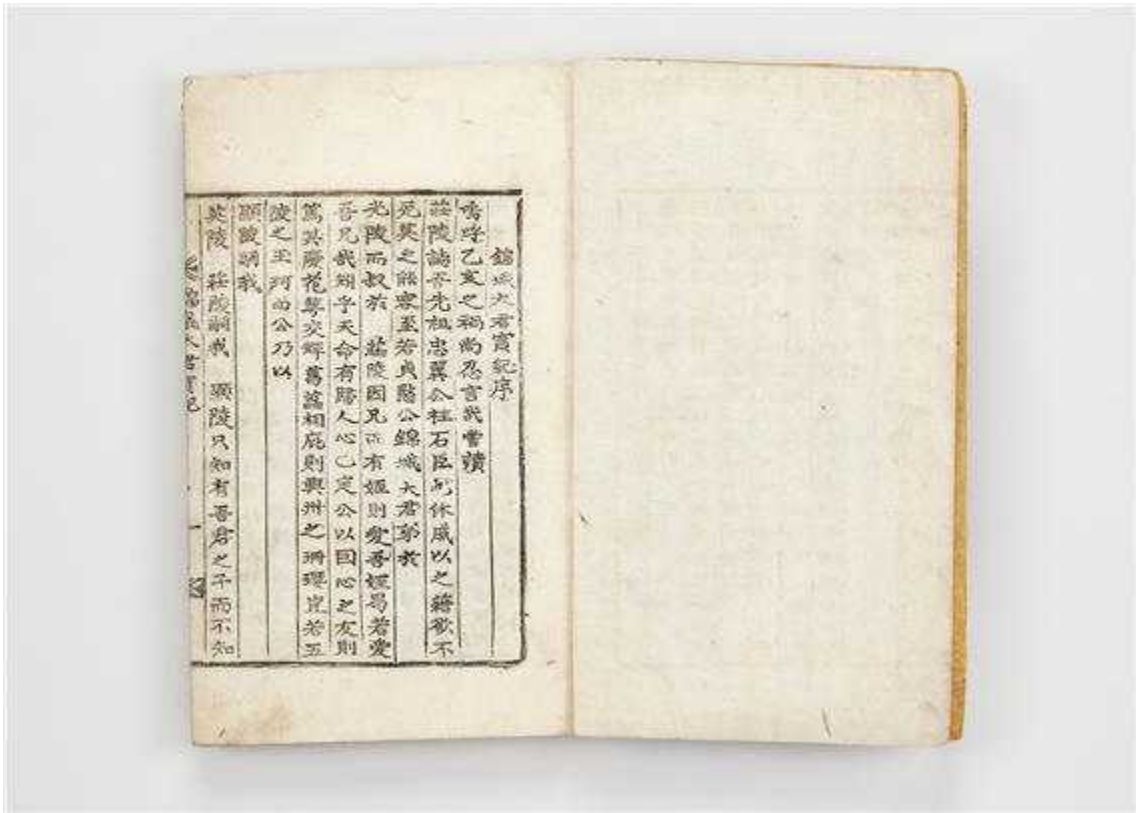 錦城大君實紀序
嗚呼乙亥之禍尚忍言哉嘗讀
莊陵誌吾先祖忠翼公柱石臣也休戚以之義欲不
死冀之能容至若貞愍公錦城大君弟於
光陵而叔於 莊陵因兄而有姪則愛吾姪曷若愛
吾兄哉矧乎天命有歸人心已定公以因心之友則
篤其慶花萼交輝葛藟相庇則興州之珊瓊豈若五
陵之玉珂而公乃以
顯陵嗣我
英陵 莊陵嗣我 顯陵只知有吾君之子而不知
錦城大君實紀
一